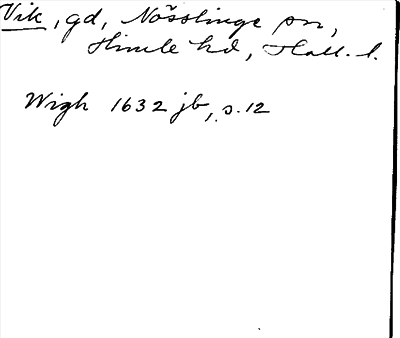 Vik, gd, Nösslinge sn,
Himle hd, Hall. l.
Wigh 1632 jb, s. 12